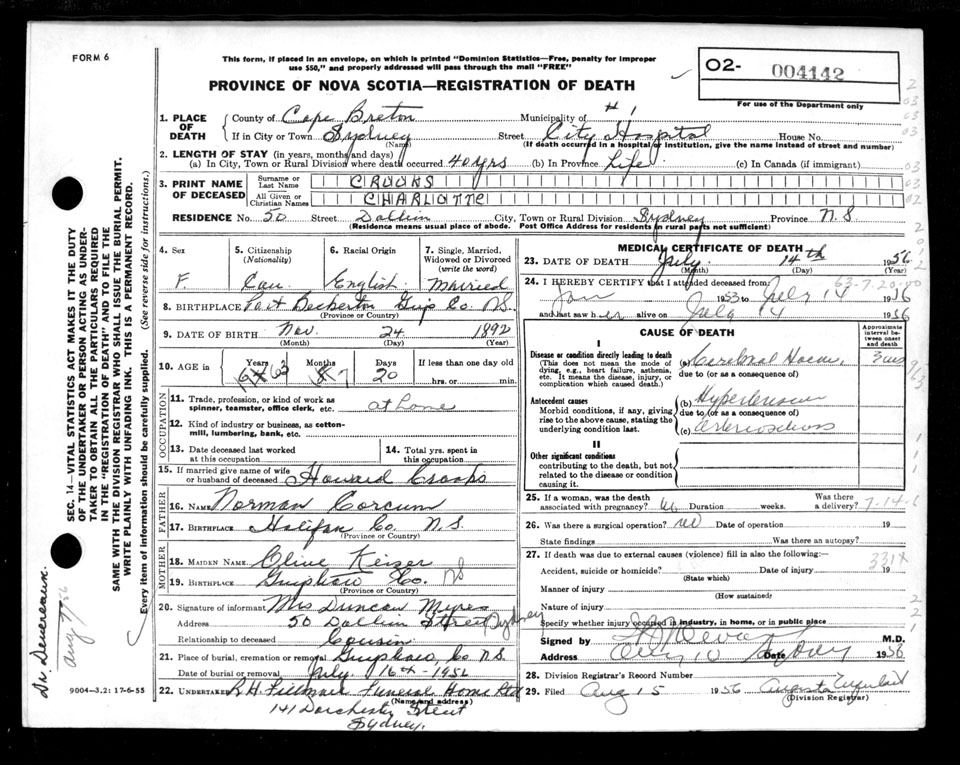 FORM 6
This form, if placed in an envelope, on which is printed "Dominion Statistics—Free, penalty for improper
use $50," and properly addressed will pass through the mail "FREE"
PROVINCE OF NOVA SCOTIA—REGISTRATION OF DEATH
O2- 004142
For use of the Department only
1. PLACE OF DEATH
County of Cape Breton Municipality of #1
If in City or Town Sydney Street City Hospital House No.
(Name) (If death occurred in a hospital or institution, give the name instead of street and number)
2. LENGTH OF STAY (in years, months and days)
(a) In City, Town or Rural Division where death occurred 40 yrs (b) In Province Life (c) In Canada (if immigrant)
3. PRINT NAME OF DECEASED
Surname or Last Name CROOKS
All Given or Christian Names CHARLOTTE
RESIDENCE No. 50 Street City, Town or Rural Division Sydney Province N.S.
(Residence means usual place of abode. Post Office Address for residents in rural parts not sufficient)
4. Sex F.
5. Citizenship (Nationality) Can
6. Racial Origin English
7. Single, Married, Widowed or Divorced (write the word) Married
8. BIRTHPLACE Port Beckerton Guy Co. N.S.
(Province or Country)
9. DATE OF BIRTH Nov. 24 1892
(Month) (Day) (Year)
10. AGE in Years 63 Months 7 Days 20 If less than one day old hrs. or min.
OCCUPATION
11. Trade, profession, or kind of work as spinner, teamster, office clerk, etc. at home
12. Kind of industry or business, as cotton-mill, lumbering, bank, etc.
13. Date deceased last worked at this occupation
14. Total yrs. spent in this occupation
15. If married give name of wife or husband of deceased Howard Crooks
FATHER
16. NAME Norman Corcum
17. BIRTHPLACE Halifax Co. N.S.
(Province or Country)
MOTHER
18. MAIDEN NAME Olive Keizer
19. BIRTHPLACE Co. NS
(Province or Country)
20. Signature of informant Mrs Duncan Myres
Address 50 Street Sydney
Relationship to deceased Cousin
21. Place of burial, cremation or removal Co N.S.
Date of burial or removal July 16th 1956
22. UNDERTAKER R.H. Fillmore Funeral Home Ltd
(Name and address)
141 Dorchester Street
Sydney.
MEDICAL CERTIFICATE OF DEATH
23. DATE OF DEATH July 14th 1956
(Month) (Day) (Year)
24. I HEREBY CERTIFY that I attended deceased from:
63-7.20.00
Jan 1953 to July 14 1956
and last saw her alive on July 14 1956
CAUSE OF DEATH
Approximate interval between onset and death
I
Disease or condition directly leading to death
(This does not mean the mode of dying, e.g., heart failure, asthenia, etc. It means the disease, injury, or complication which caused death.)
(a) Cerebral Haem.
due to (or as a consequence of)
Antecedent causes
Morbid conditions, if any, giving rise to the above cause, stating the underlying condition last.
(b) Hypertension
due to (or as a consequence of)
(c) Arteriosclerosis
II
Other significant conditions
contributing to the death, but not related to the disease or condition causing it.
25. If a woman, was the death associated with pregnancy? No Duration weeks. Was there a delivery?
26. Was there a surgical operation? No Date of operation 19
State findings Was there an autopsy?
27. If death was due to external causes (violence) fill in also the following:—
331X
Accident, suicide or homicide? Date of injury 19
(State which)
Manner of injury
(How sustained)
Nature of injury
Specify whether injury occurred in industry, in home, or in public place
Signed by M.D.
Address Date 1956
28. Division Registrar's Record Number
29. Filed Aug 15 1956 Augusta
(Division Registrar)
SEC. 14—VITAL STATISTICS ACT MAKES IT THE DUTY
OF THE UNDERTAKER OR PERSON ACTING AS UNDER-
TAKER TO OBTAIN ALL THE PARTICULARS REQUIRED
IN THE "REGISTRATION OF DEATH" AND TO FILE THE
SAME WITH THE DIVISION REGISTRAR WHO SHALL ISSUE THE BURIAL PERMIT.
WRITE PLAINLY WITH UNFADING INK. THIS IS A PERMANENT RECORD.
Every item of information should be carefully supplied. (See reverse side for instructions.)
Dr. Devereaux.
Aug 7/56
9004—3.2: 17-6-53